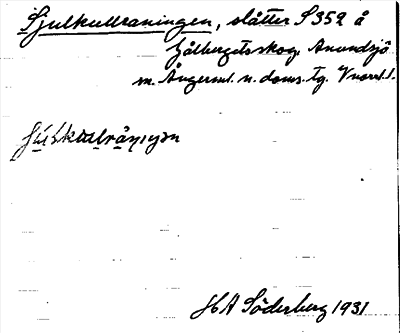 Sjulkullraningen, slåtter S 352 å
Gålbergetsskog. Anundsjö
m. Ångerml. n. doms. tg. Vnorrl. l.
HA Söderberg 1931